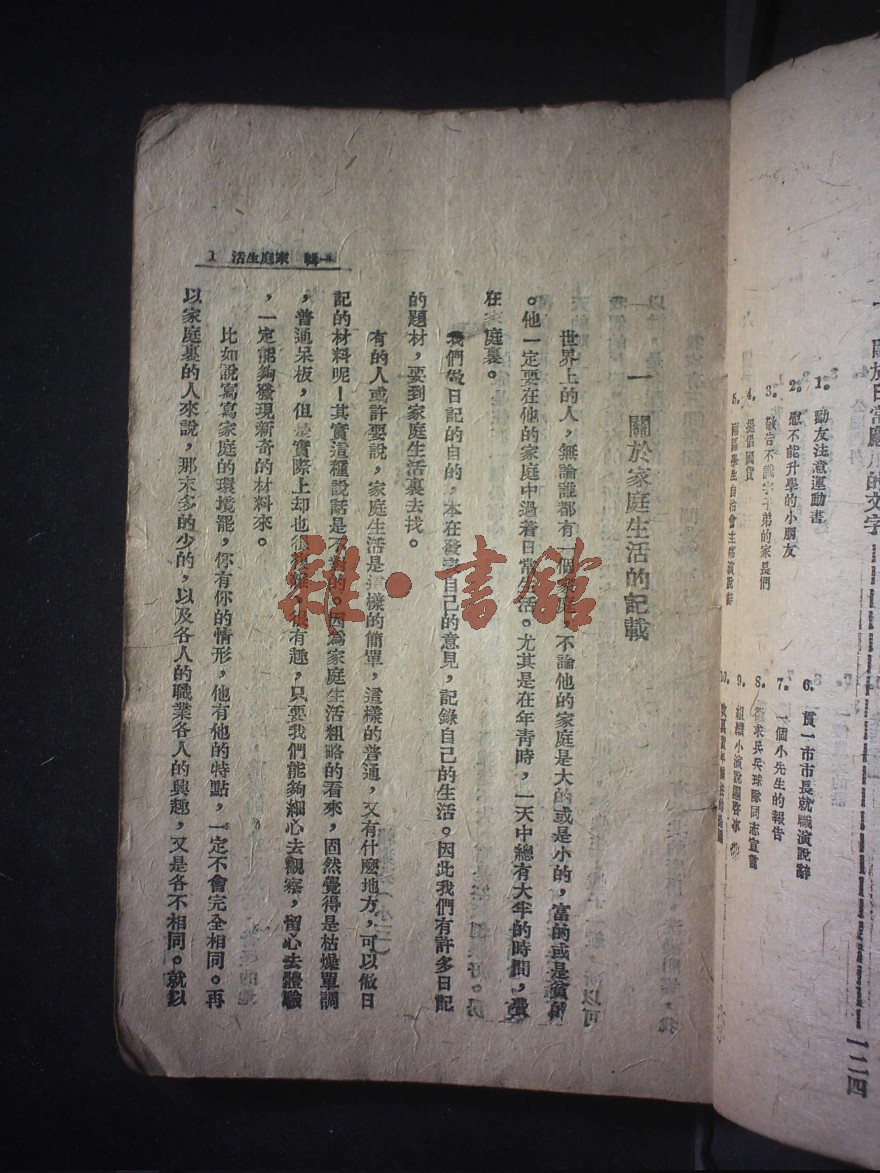 關於日常應用的文字 一二四
1. 勸友注意運動書
2. 慰不能升學的小朋友
3. 敬告不識字子弟的家長們
4. 提倡國貨
5. 學生自治會主席演說辭
6. 貫一市市長就職演說辭
7. 一個小先生的報告
8. 求乒乓球隊同志宣言
9. 組織小演說團啓事
10.
一輯 家庭生活 1
一 關於家庭生活的記載
世界上的人，無論誰都有一個家庭，不論他的家庭是大的或是小的，富的或是貧的
。他一定要在他的家庭中過着日常生活。尤其是在年青時，一天中總有大半的時間，
在家庭裏。
我們做日記的目的，本在發表自己的意見，記錄自己的生活。因此我們有許多日記
的題材，要到家庭生活裏去找。
有的人或許要說，家庭生活是這樣的簡單，這樣的普通，又有什麼地方，可以做日
記的材料呢！其實這種說話是不對的。因爲家庭生活粗略的看來，固然覺得是枯燥單調
，普通呆板，但是實際上却也很，很有趣，只要我們能夠細心去觀察，留心去體驗
，一定能夠發現新奇的材料來。
比如說寫寫家庭的環境罷，你有你的情形，他有他的特點，一定不會完全相同。再
以家庭裏的人來說，那末多的少的，以及各人的職業各人的興趣，又是各不相同。就以
雜·書館